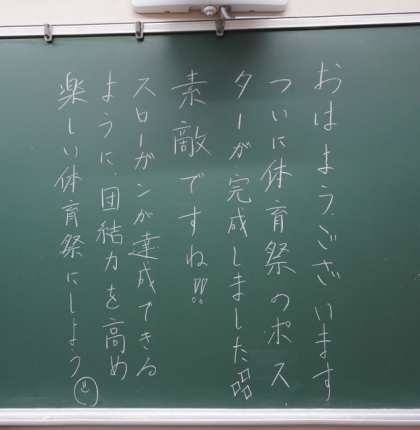 おはようございます
ついに体育祭のポス
ターが完成しました
素敵ですね!!
スローガンが達成できる
ように、団結力を高め
楽しい体育祭にしよう